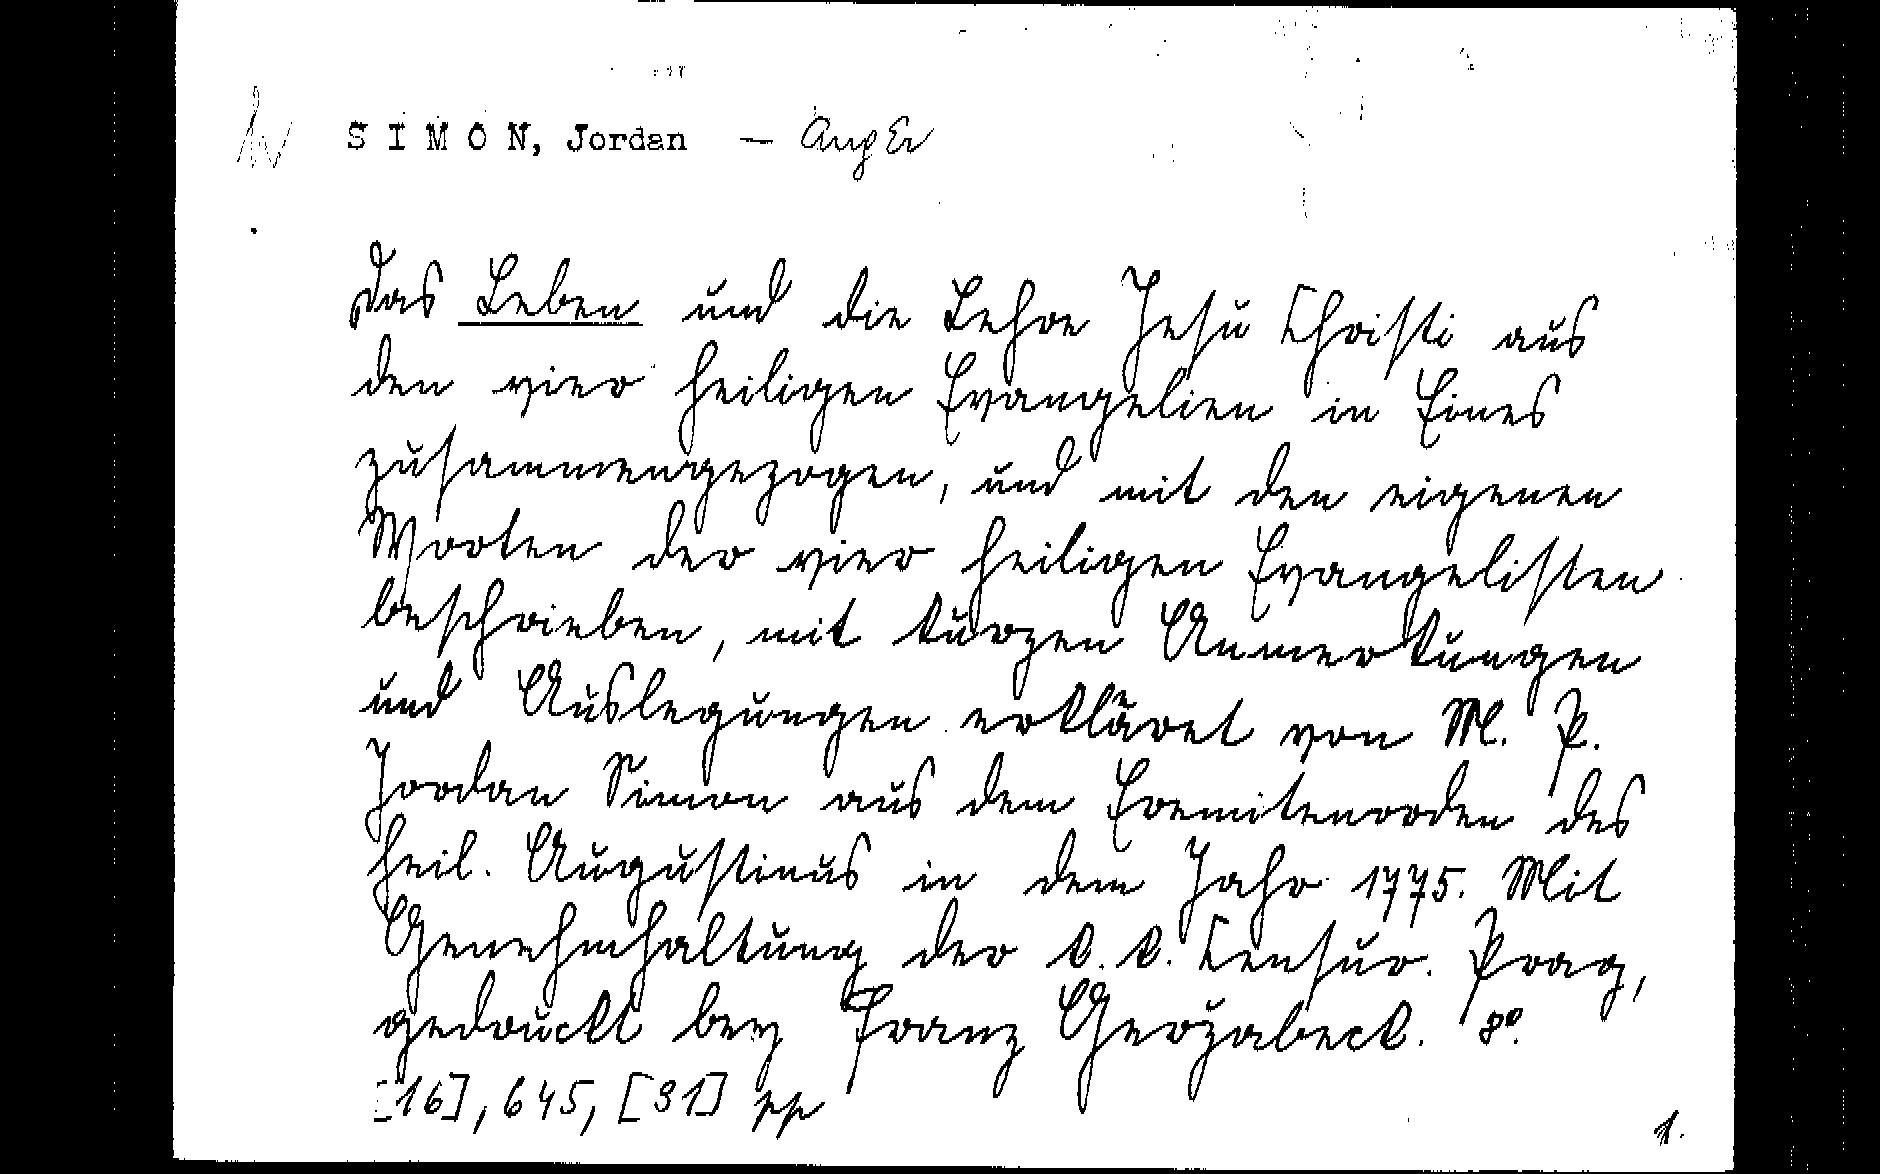 SIMON, Jordan — Aug Er
Das Leben und die Lehre Jesu Christi aus
den vier heiligen Evangelien in Eines
zusammengezogen, und mit den eigenen
Worten der vier heiligen Evangelisten
beschrieben, mit kurzen Anmerkungen
und Auslegungen erkläret von M. P.
Jordan Simon aus dem Eremitenorden des
heil. Augustinus in dem Jahr 1775. Mit
Genehmhaltung der k. k. Censur. Prag,
gedruckt bey Franz Geržabeck. 8º.
[16], 645, [31] pp
1.